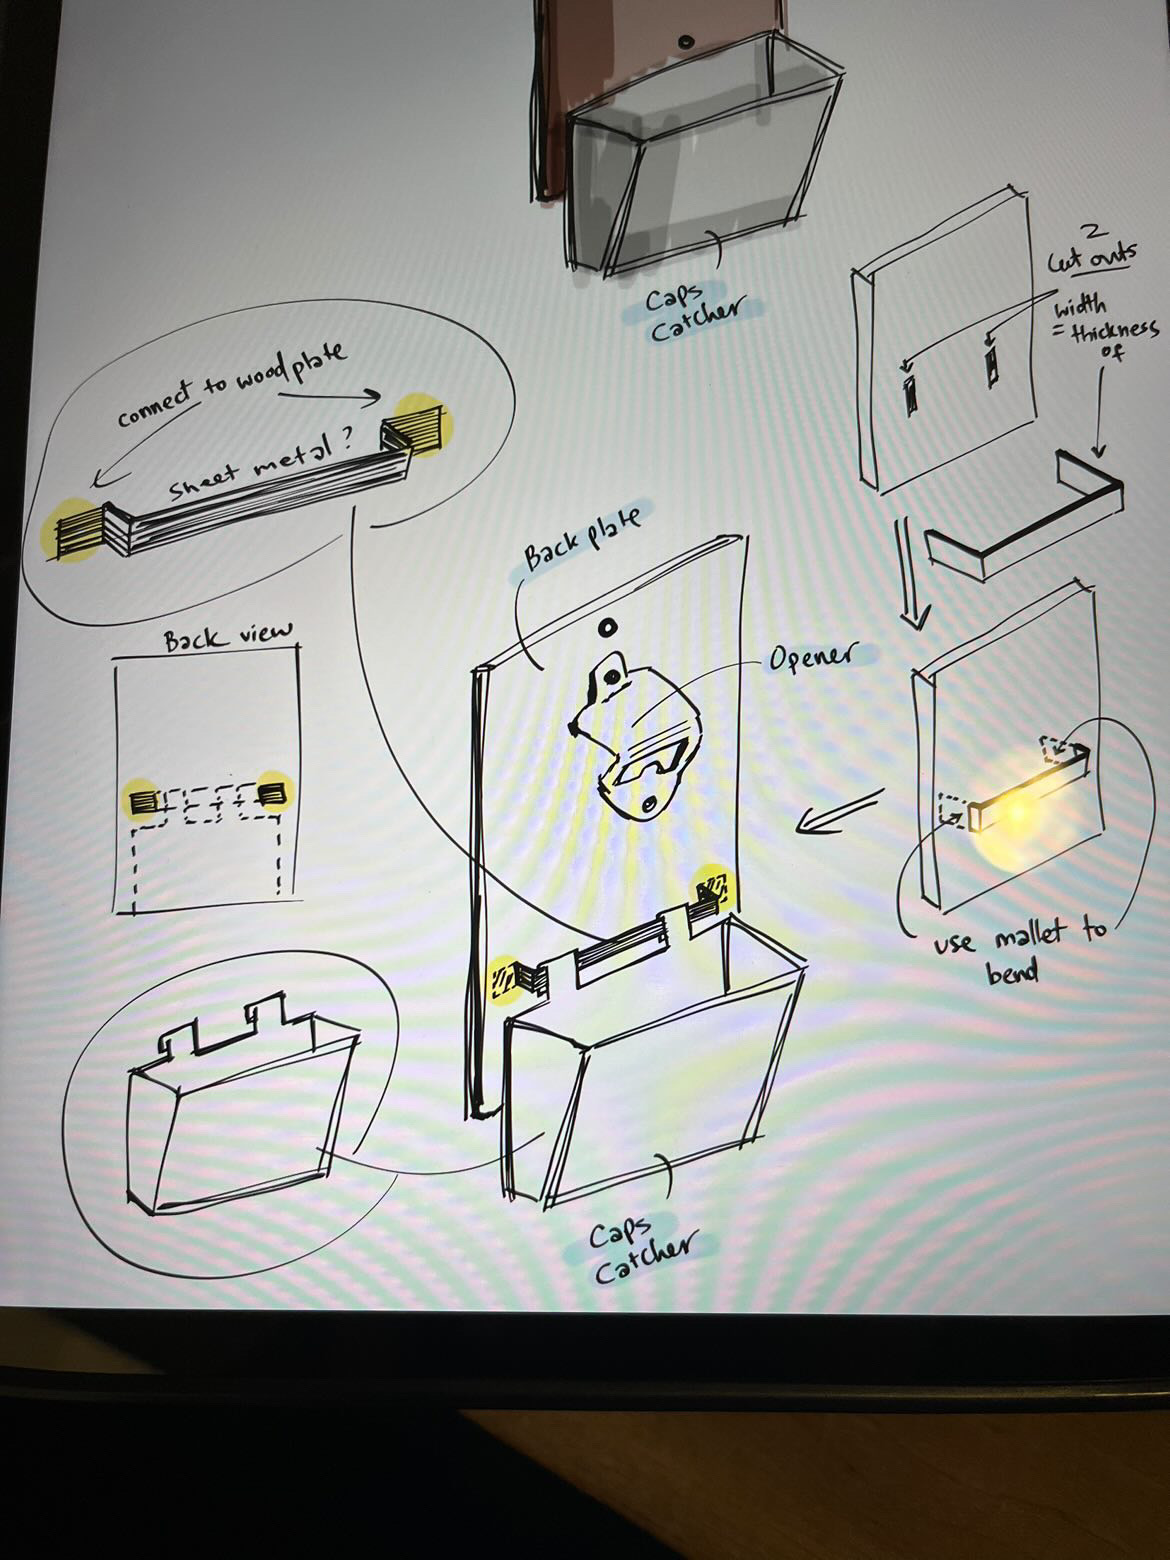 Caps
Catcher
2
Cut outs
width
= thickness
of
connect to wood plate
sheet metal ?
Back plate
Back view
Opener
use mallet to
bend
Caps
Catcher